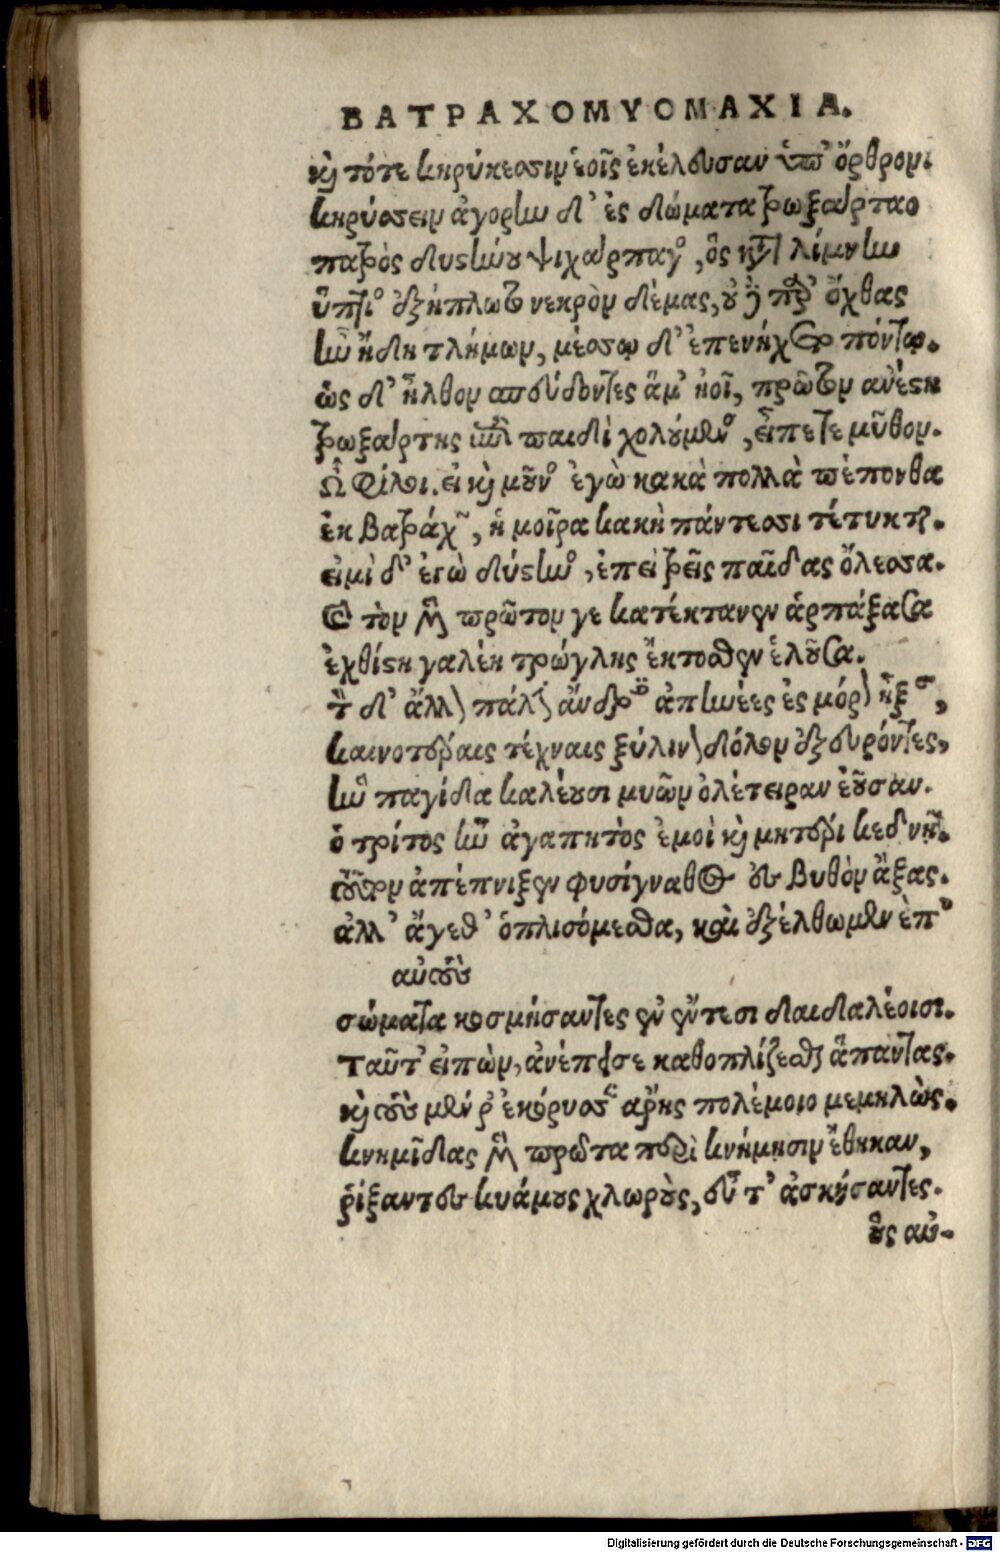 ΒΑΤΡΑΧΟΜΥΟΜΑΧΙΑ.
καὶ τότε κηρύκεσσιν ἑοῖς ἐκέλευσαν ὑπ' ὄρθρον.
κηρύσσειν ἀγορὴν δ' ἐς δώματα τρωξάρταο
πατρὸς δυστήνου ψιχάρπαγος, ὃς κατὰ λίμνην
ὕπτιος ἐξήπλωτο νεκρὸν δέμας, οὐδὲ παρ' ὄχθας
ἦν ἤδη τλήμων, μέσσῳ δ' ἐπενήχετο πόντῳ.
ὡς δ' ἦλθον σπεύδοντες ἅμ' ἠοῖ, πρῶτον ἀνέστη
τρωξάρτης ἐπὶ παιδὶ χολούμενος, εἶπέ τε μῦθον.
Ὦ φίλοι. εἰ καὶ μοῦνος ἐγὼ κακὰ πολλὰ πέπονθα
ἐκ βατράχων, ἡ μοῖρα κακὴ πάντεσσι τέτυκται.
εἰμὶ δ' ἐγὼ δύστηνος, ἐπεὶ τρεῖς παῖδας ὄλεσσα.
καὶ τὸν μὲν πρῶτον γε κατέκτανεν ἁρπάξασα
ἐχθίστη γαλέη τρώγλης ἔκτοσθεν ἑλοῦσα.
τὸν δ' ἄλλον πάλιν ἄνδρες ἀπηνέες ἐς μόρον ἦξαν,
καινοτέραις τέχναις ξύλινον δόλον ἐξευρόντες,
ἣν παγίδα καλέουσι μυῶν ὀλέτειραν ἐοῦσαν.
ὁ τρίτος ἦν ἀγαπητὸς ἐμοὶ καὶ μητέρι κεδνῇ.
τοῦτον ἀπέπνιξεν φυσίγναθος ἐς βυθὸν ἄξας.
ἀλλ' ἄγεθ' ὁπλισόμεσθα, καὶ ἐξέλθωμεν ἐπ'
αὐτοὺς
σώματα κοσμήσαντες ἐν ἔντεσι δαιδαλέοισι.
Ταῦτ' εἰπὼν, ἀνέπεισε καθοπλίζεσθαι ἅπαντας.
καὶ τοὺς μέν ῥ' ἐκόρυσσεν ἄρης πολέμοιο μεμηλὼς.
κνημῖδας μὲν πρῶτα περὶ κνήμησιν ἔθηκαν,
ῥίξαντες κυάμους χλωροὺς, εὖ τ' ἀσκήσαντες.
οὓς αὐ-
Digitalisierung gefördert durch die Deutsche Forschungsgemeinschaft - DFG